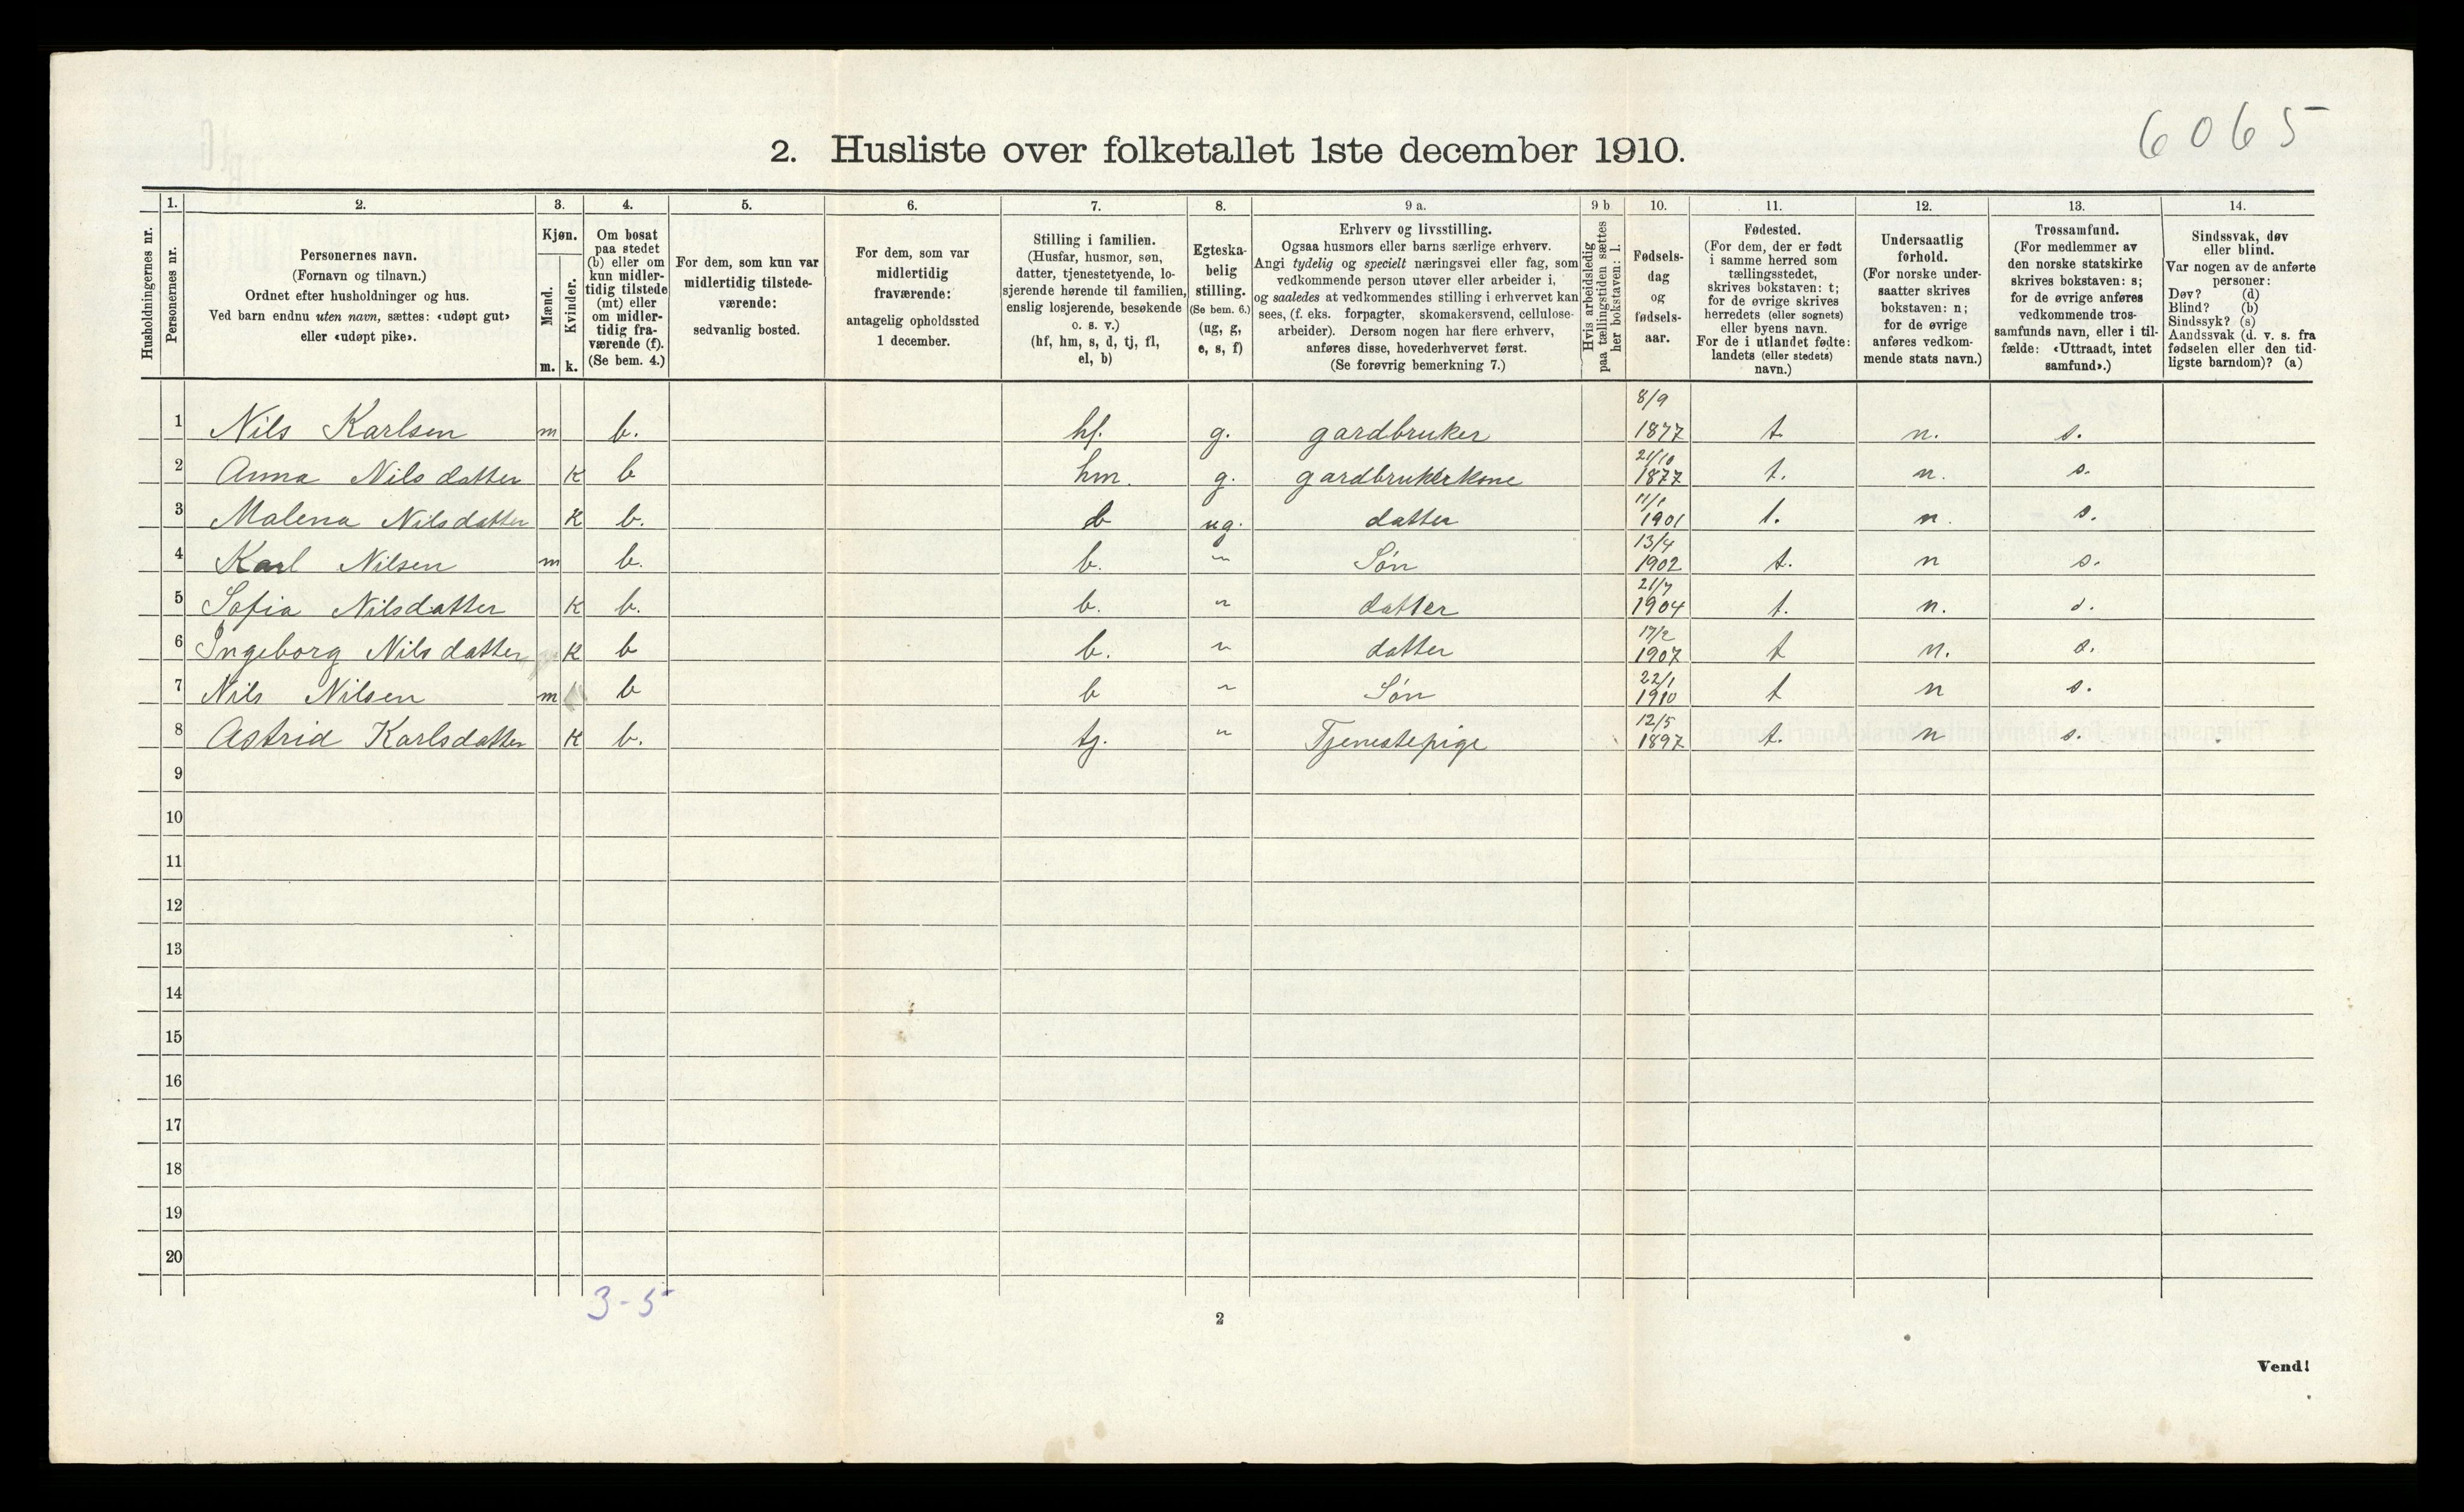 6065
2. Husliste over folketallet 1ste december 1910.
Husholdningernes nr.
1.
Personernes nr.
2.
Personernes navn.
(Fornavn og tilnavn.)
Ordnet efter husholdninger og hus.
Ved barn endnu uten navn, sættes: «udøpt gut»
eller «udøpt pike».
3.
Kjøn.
Mænd.
Kvinder.
m. k.
4.
Om bosat
paa stedet
(b) eller om
kun midler-
tidig tilstede
(mt) eller
om midler-
tidig fra-
værende (f).
(Se bem. 4.)
5.
For dem, som kun var
midlertidig tilstede-
værende:
sedvanlig bosted.
6.
For dem, som var
midlertidig
fraværende:
antagelig opholdssted
1 december.
7.
Stilling i familien.
(Husfar, husmor, søn,
datter, tjenestetyende, lo-
sjerende hørende til familien,
enslig losjerende, besøkende
o. s. v.)
(hf, hm, s, d, tj, fl,
el, b)
8.
Egteska-
belig
stilling.
(Se bem. 6.)
(ug, g,
e, s, f)
9 a.
Erhverv og livsstilling.
Ogsaa husmors eller barns særlige erhverv.
Angi tydelig og specielt næringsvei eller fag, som
vedkommende person utøver eller arbeider i,
og saaledes at vedkommendes stilling i erhvervet kan
sees, (f. eks. forpagter, skomakersvend, cellulose-
arbeider). Dersom nogen har flere erhverv,
anføres disse, hovederhvervet først.
(Se forøvrig bemerkning 7.)
9 b
Hvis arbeidsledig
paa tællingstiden sættes
her bokstaven: l.
10.
Fødsels-
dag
og
fødsels-
aar.
11.
Fødested.
(For dem, der er født
i samme herred som
tællingsstedet,
skrives bokstaven: t;
for de øvrige skrives
herredets (eller sognets)
eller byens navn.
For de i utlandet fødte:
landets (eller stedets)
navn.)
12.
Undersaatlig
forhold.
(For norske under-
saatter skrives
bokstaven: n;
for de øvrige
anføres vedkom-
mende stats navn.)
13.
Trossamfund.
(For medlemmer av
den norske statskirke
skrives bokstaven: s;
for de øvrige anføres
vedkommende tros-
samfunds navn, eller i til-
fælde: «Uttraadt, intet
samfund».)
14.
Sindssvak, døv
eller blind.
Var nogen av de anførte
personer:
Døv? (d)
Blind? (b)
Sindssyk? (s)
Aandssvak (d. v. s. fra
fødselen eller den tid-
ligste barndom)? (a)
1 Nils Karlsen m b. hf. g. gardbruker 8/9 1877 t. n. s.
2 Anna Nilsdatter k b hm. g. gardbrukerkone 21/10 1877 t. n. s.
3 Malena Nilsdatter k b. b ug. datter 11/1 1901 t. n. s.
4 Karl Nilsen m b. b. " Søn 13/4 1902 t. n s.
5 Sofia Nilsdatter k b. b. " datter 21/7 1904 t. n. s.
6 Ingeborg Nilsdatter k b b. " datter 17/2 1907 t n. s.
7 Nils Nilsen m b b " Søn 22/1 1910 t n s.
8 Astrid Karlsdatter k b. tj. " Tjenestepige 12/5 1897 t. n s.
9
10
11
12
13
14
15
16
17
18
19
20
3-5
2
Vend!